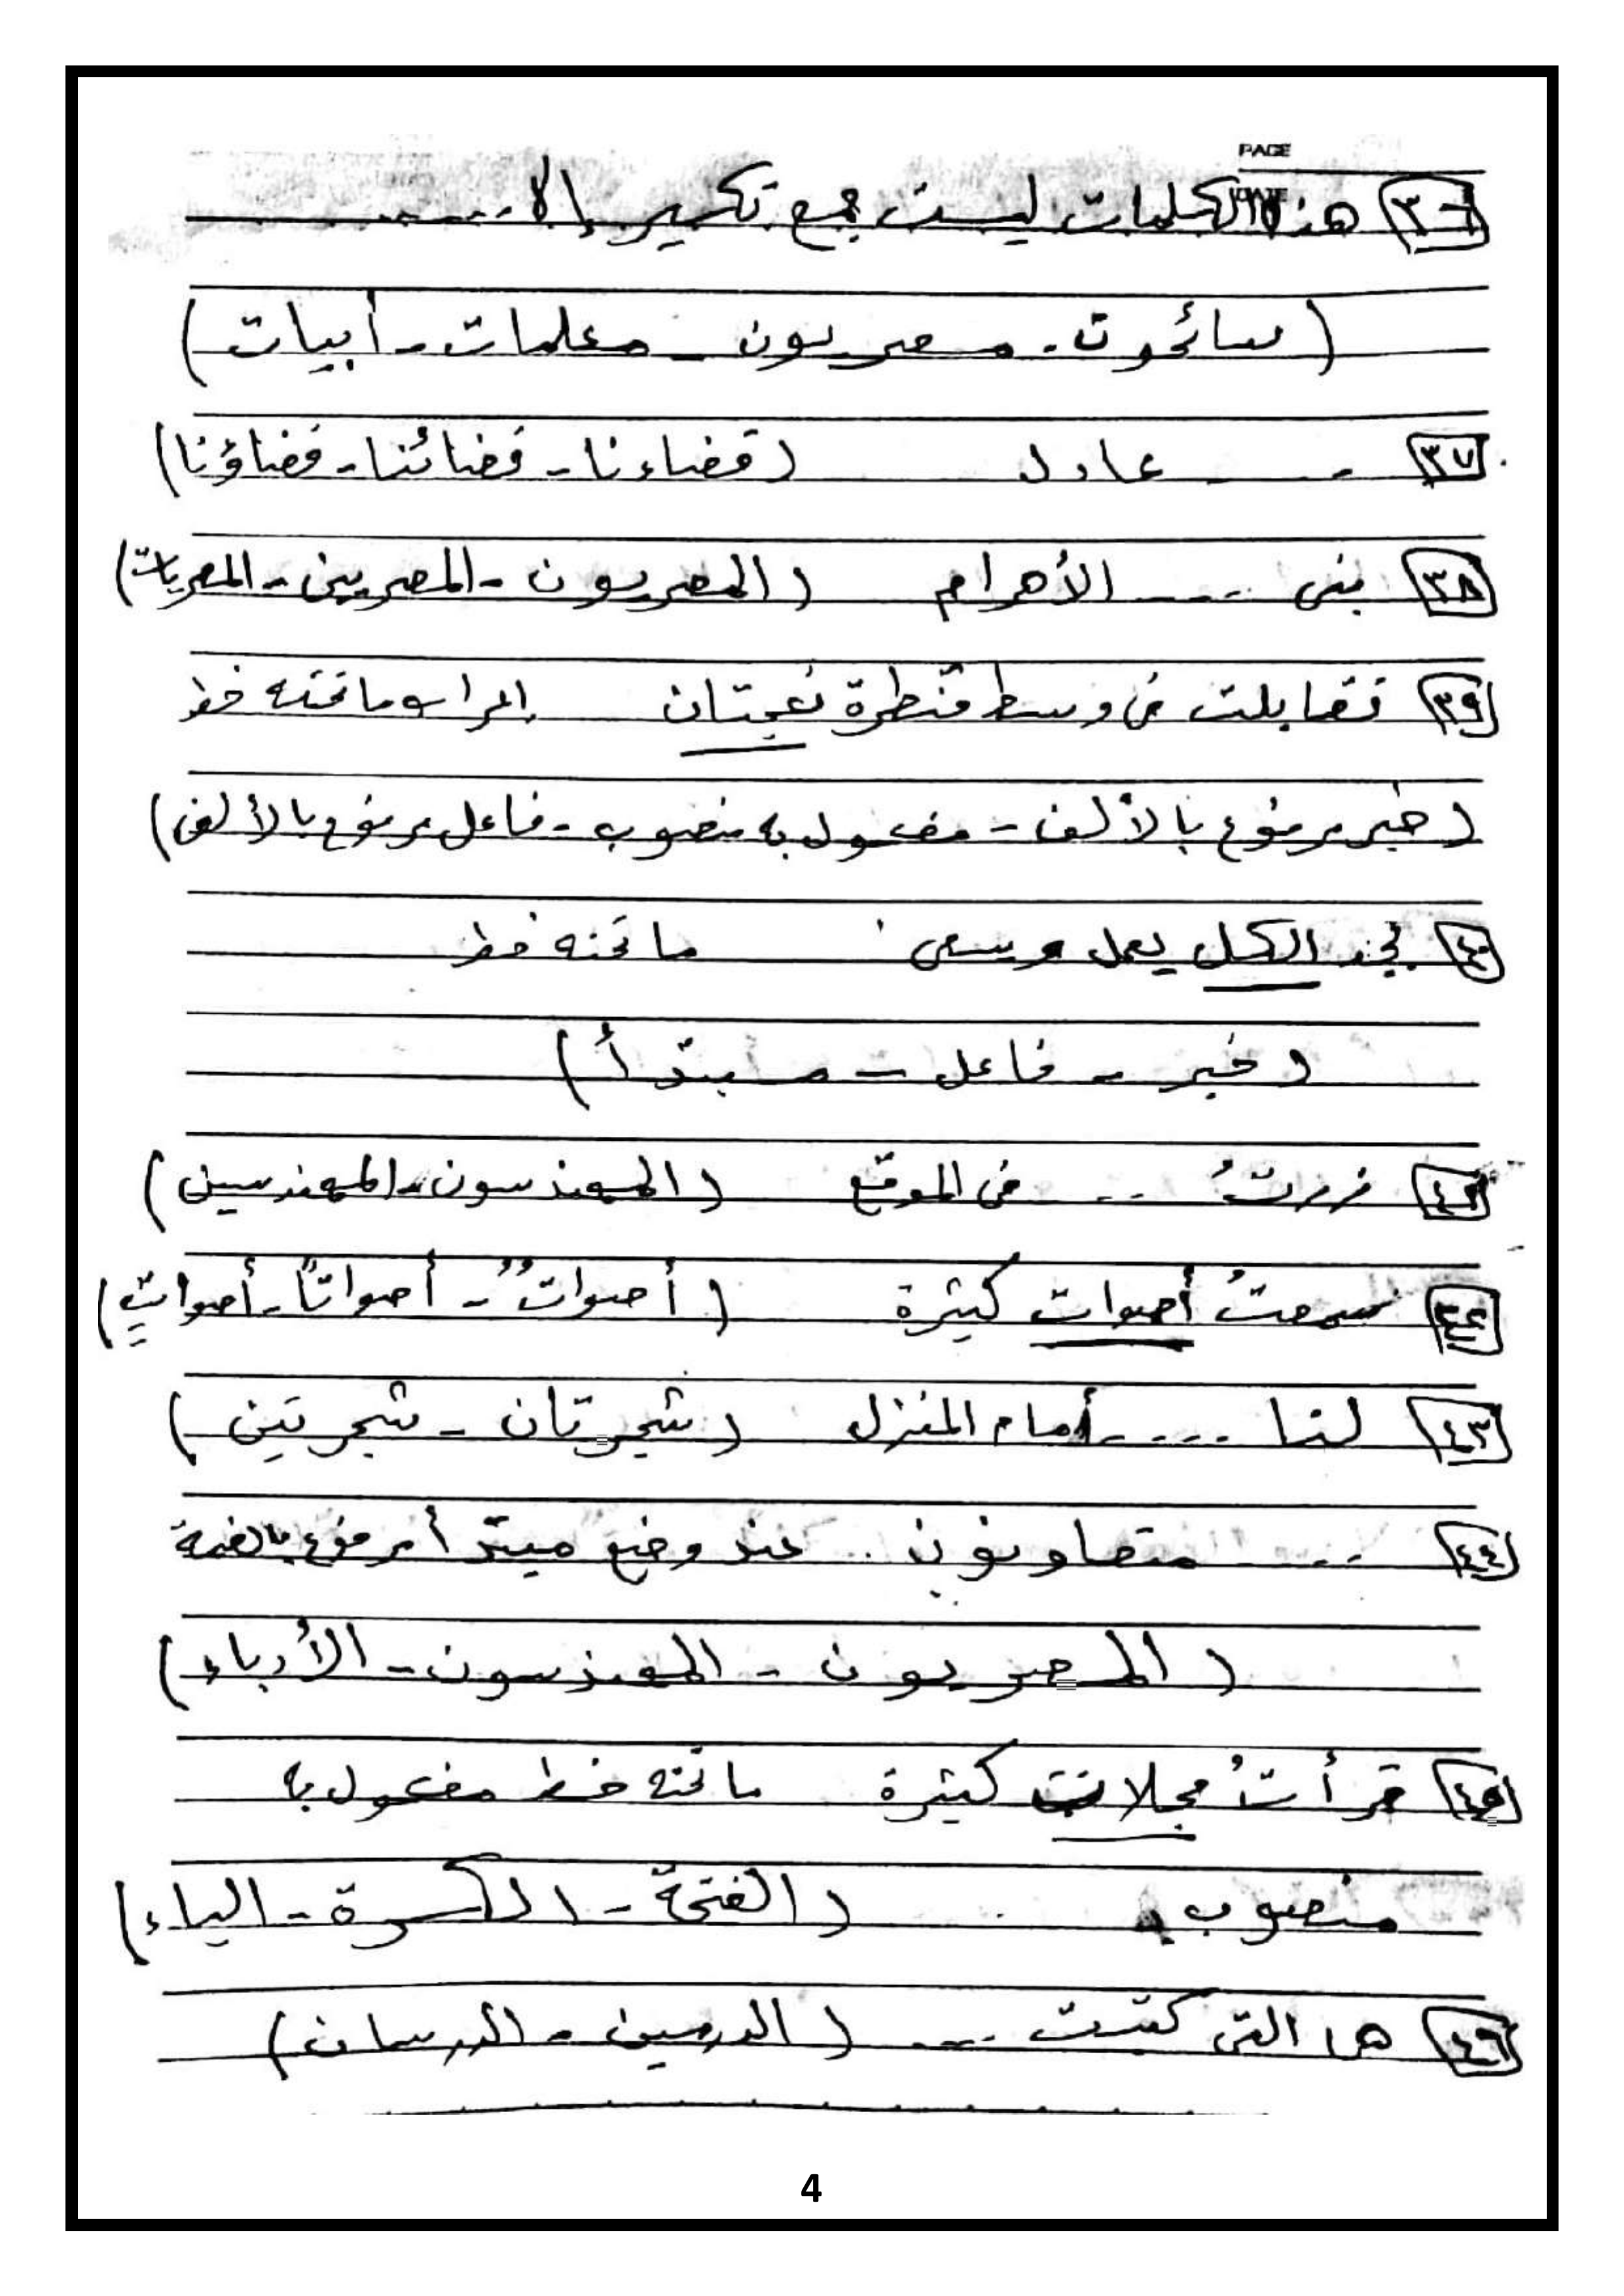 PAGE
٣٦ هذه الكلمات ليست جمع تكسير إلا ......
( سائحون - مصريون - معلمات - أبيات )
٣٧ .... عادل ( قضاءنا - قضائنا - قضاؤنا )
٣٨ بنى .... الأهرام ( المصريون - المصريين - المصريات )
٣٩ تقابلت فى وسط قنطرة نعجتان إعراب ما تحته خط
( خبر مرفوع بالألف - مفعول به منصوب - فاعل مرفوع بالألف )
٤٠ تجد الكل يعمل ويسعى ما تحته خط
( خبر - فاعل - مبتدأ )
٤١ زرتُ .... فى الموقع ( المهندسون - المهندسين )
٤٢ سمعتُ أصوات كثيرة ( أصواتٌ - أصواتاً - أصواتٍ )
٤٣ لنا .... أمام المنزل ( شجرتان - شجرتين )
٤٤ .... متعاونون .. عند وضع مبتدأ مرفوع بالضمة
( المصريون - المهندسون - الأدباء )
٤٥ قرأتُ مجلات كثيرة ما تحته خط مفعول به
منصوب ( الفتحة - الكسرة - الياء )
٤٦ ها التى كتبت .... ( الدرسين - الدرسان )
4